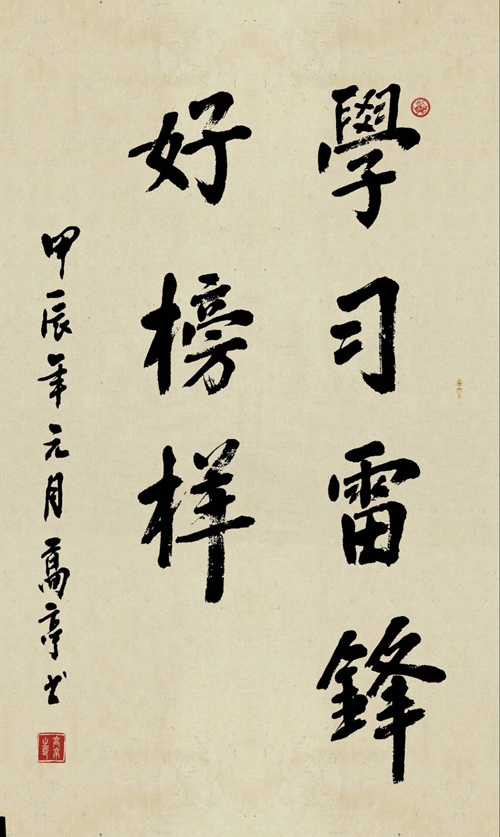 學习雷鋒
好榜样
甲辰年元月亭书